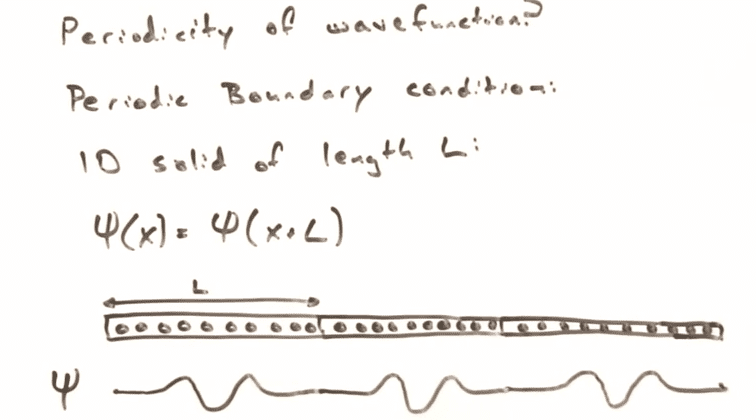 Periodicity of wavefunction?
Periodic Boundary condition:
1D solid of length L:
Ψ(x) = Ψ(x+L)
L
Ψ